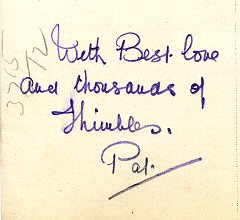 With Best love
and thousands of
Thimbles.
Pat.